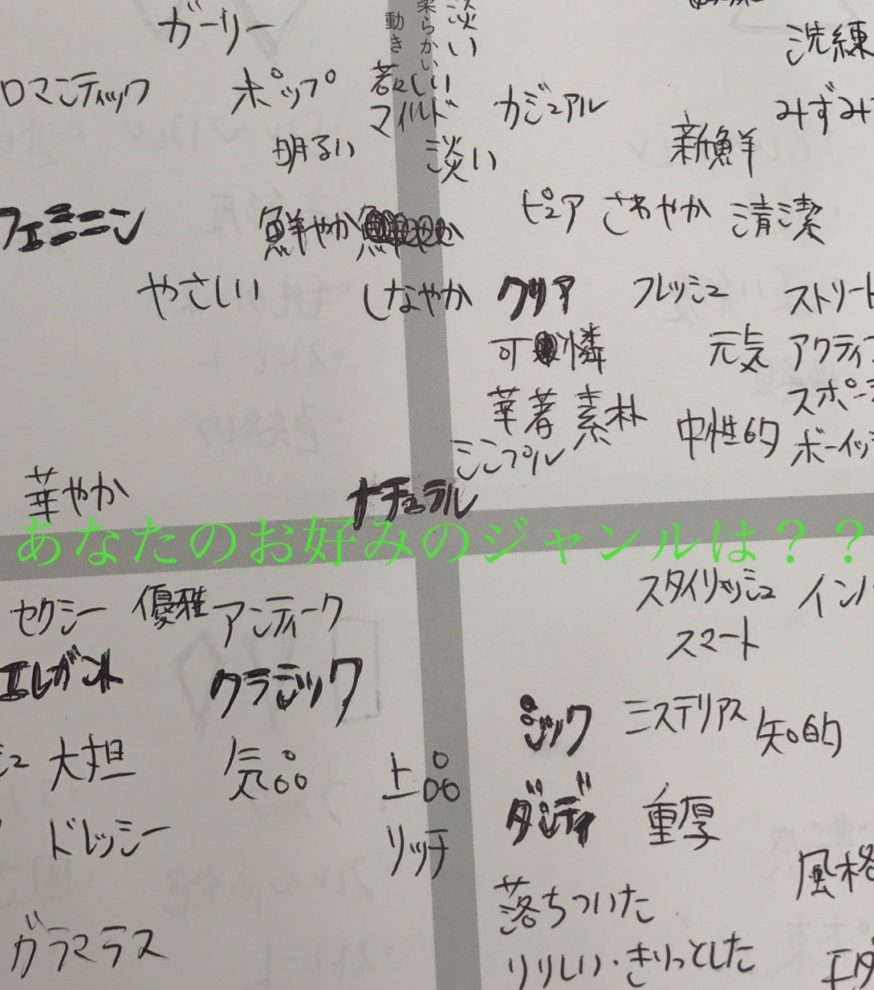 ガーリー
ロマンティック
ポップ
明るい
フェミニン
鮮やか
やさしい
華やか
動き
柔らかい
淡い
若々しい
マイルド
淡い
しなやか
ナチュラル
洗練
カジュアル
みずみ
新鮮
ピュア さわやか 清潔
クリア フレッシュ ストリート
可憐 元気 アクティ
華著 素朴 中性的 スポー
シンプル ボーイッ
あなたのお好みのジャンルは？？
セクシー 優雅 アンティーク
エレガント クラシック
大胆 気品 上品
ドレッシー リッチ
ガラマラス
スタイリッシュ
スマート
シック ミステリアス 知的
ダンディ 重厚
落ちついた 風格
りりしい・きりっとした